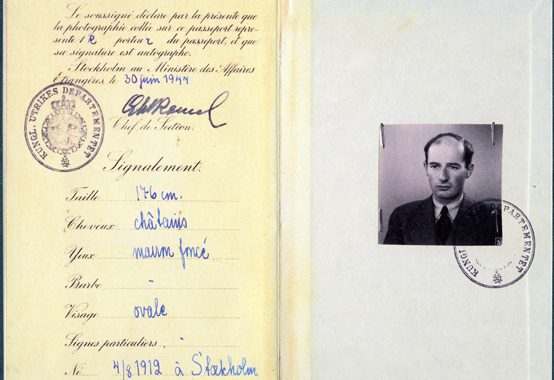 Le soussigné déclare par la présente que
la photographie collée sur ce passeport repré-
sente le porteur du passeport, et que
sa signature est autographe.
Stockholm au Ministère des Affaires
Étrangères le 30 juin 1944
Chef de Section.
KUNGL. UTRIKES DEPARTEMENTET
Signalement.
Taille 176 cm.
Cheveux châtains
Yeux marron foncé
Barbe -
Visage ovale
Signes particuliers -
Né 4/8 1912 à Stockholm
KUNGL. UTRIKES DEPARTEMENTET